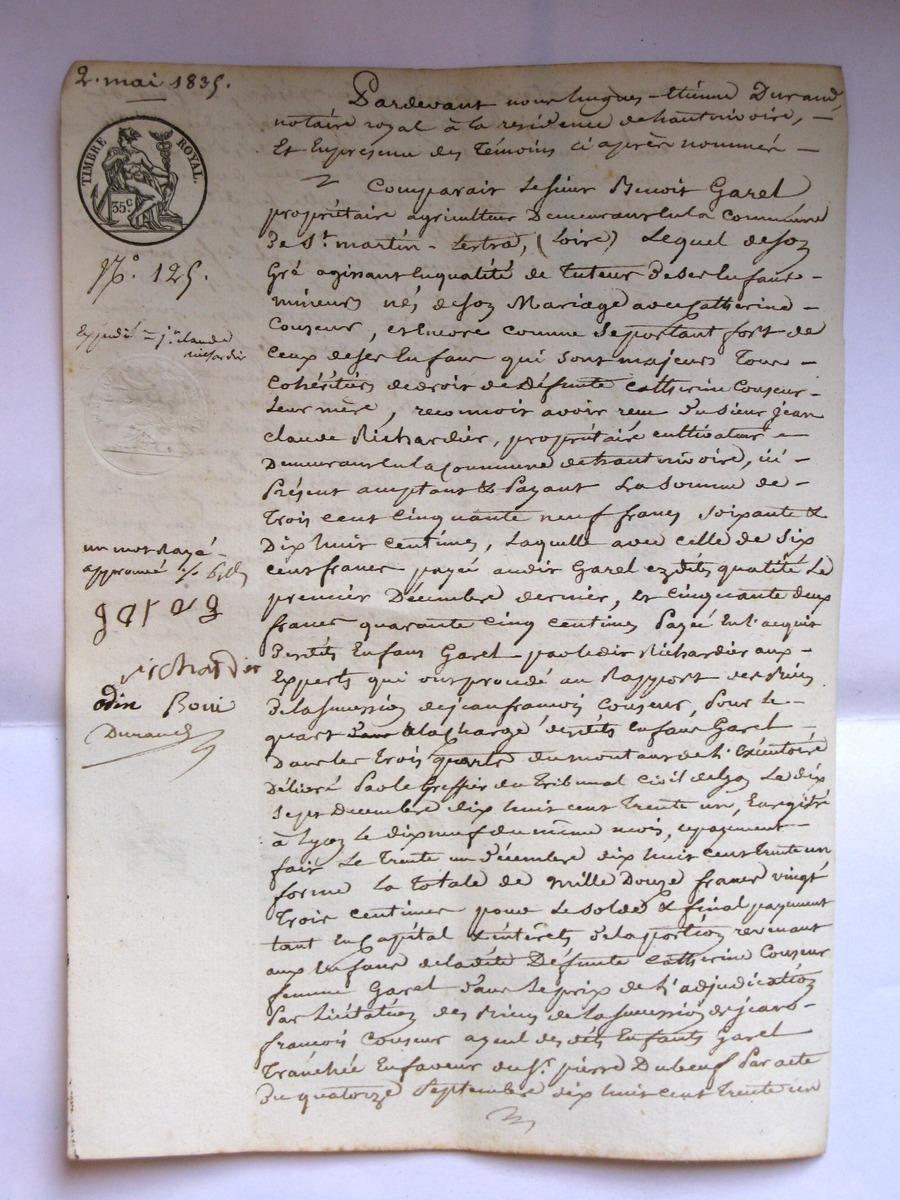 2. mai 1835.
TIMBRE ROYAL.
35 c
N.° 125.
Expédié à j.n claude
richardier
un mot Rayé
approuvé
garay
richardier
odin Boni
Durand
Pardevant nous hugues-Etienne Durand
notaire royal à la résidence de hauterivoire,
Et En présence des Témoins ci après nommés
Comparait Le sieur Benoit Garel
propriétaire agriculteur Demeurant En la commune
De S.t martin-Lestra, (Loire) Lequel de son
Gré agissant En qualité de Tuteur De ses Enfants
mineurs nés de son Mariage avec Catherine
Couseur, et Encore comme se portant fort de
Ceux de ses Enfans qui sont majeurs Tous
Cohéritiers de droit de Défunte Catherine Couseur
Leur mère, reconnoit avoir reçu Du sieur jean
claude Richardier, propriétaire cultivateur
Demeurant En la Commune de hauterivoire, ici
Présent acceptant & Payant La somme de
Trois cent Cinquante neuf francs soixante &
Dix huit centimes, Laquelle avec celle de six
cent francs payée audit Garel ezdites qualité Le
premier Décembre dernier, et cinquante deux
francs quarante cinq centimes Payée En l'acquis
Desdits Enfans Garel par le dit Richardier aux
Experts qui ont procédé au Rapport des Biens
De la succession de jean françois Couseur, Pour le
quart à la Charge desdits Enfans Garel
Dans les Trois quarts du montant de l'Exécutoire
Délivré Par le Greffier du Tribunal Civil de Lyon Le dix
sept Décembre dix huit cent Trente un, Enregistré
à Lyon le dix neuf du même mois, ce payement
fait Le Trente un Décembre dix huit cent Trente un
forme La Totale de Mille Douze francs vingt
Trois centimes pour Le solde & final payement
tant En Capital & intérêts De la portion revenant
aux Enfans de la dite Défunte Catherine Couseur
femme Garel Dans Le prix de L'adjudication
Par Licitation des Biens de La succession de jean
françois Couseur ayeul des dits Enfants Garel
Tranchée En faveur du S.r pierre Dubeuf Par acte
Du quatorze Septembre dix huit cent Trente un